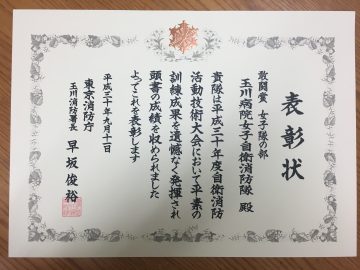 表彰状
敢闘賞 女子隊の部
玉川病院女子自衛消防隊 殿
貴隊は平成三十年度自衛消防
活動技術大会において平素の
訓練成果を遺憾なく発揮され
頭書の成績を収められました
よってこれを表彰します
平成三十年九月十一日
東京消防庁
玉川消防署長 早坂俊裕